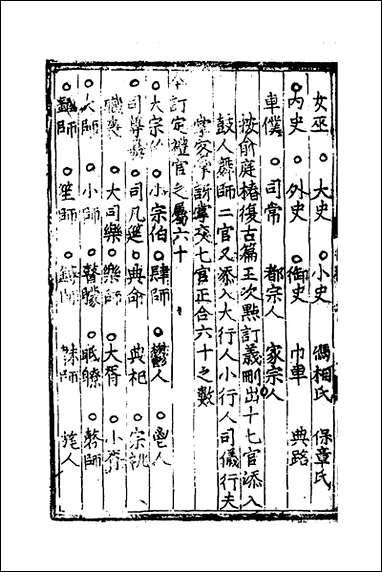 女巫○大史○小史 馮相氏 保章氏
○内史○外史○御史 巾車 典路
車僕○司常 都宗人 家宗人
按俞庭椿復古篇王次點訂義刪出十七官添入
鼓人舞師二官又添入大行人小行人司儀行夫
掌客掌訝掌交七官正合六十之數
訂定禮官之屬六十
○大宗伯○小宗伯○肆師○鬱人○鬯人
○司尊彝○司几筵○典命 典祀○宗祧
職喪○大司樂○樂師○大胥○小胥
○大師○小師○瞽矇○眡瞭○磬師
○鍾師○笙師○鎛師 韎師○旄人